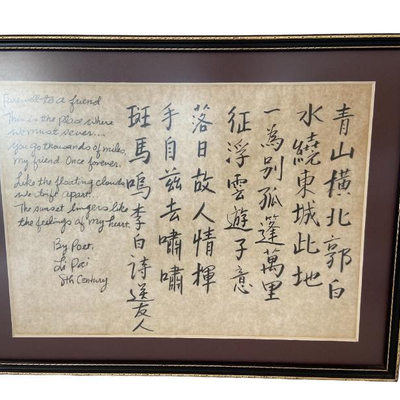 Farewell to a friend
This is the place where
we must sever...
You go thousands of miles
my friend. Once forever.
Like the floating clouds
we drift apart.
The sunset lingers like
the feelings of my heart.
By Poet,
Li Pai
8th Century
青山橫北郭白
水繞東城此地
一為別孤篷萬里
征浮雲遊子意
落日故人情揮
手自茲去嘯嘯
斑馬鳴李白詩送友人